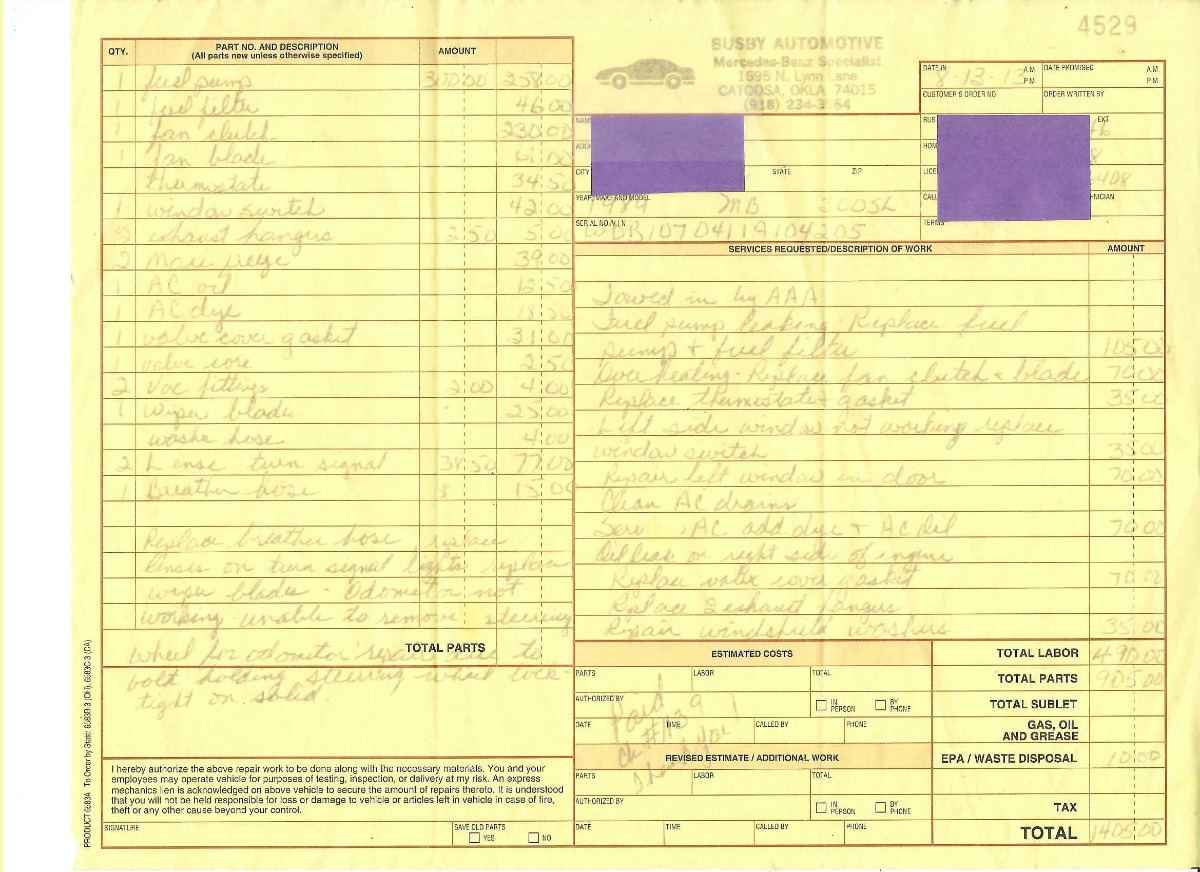 4529
BUSBY AUTOMOTIVE
Mercedes-Benz Specialist
1695 N. Lynn Lane
CATOOSA, OKLA 74015
(918) 234-3564
DATE IN 8-13-13 A.M. P.M. DATE PROMISED A.M. P.M.
CUSTOMER'S ORDER NO. ORDER WRITTEN BY
NAME
BUS EXT
ADD
HOM
CITY STATE ZIP
LICE 6408
YEAR, MAKE AND MODEL 1989 MB
CALL NICIAN
SERIAL NO./V.I.N. WDB1070411A104205
TERMS
QTY. PART NO. AND DESCRIPTION AMOUNT
(All parts new unless otherwise specified)
1 fuel pump 258.00
1 fuel filter 46.00
1 fan clutch 230.00
1 fan blade 61.00
1 thermostate 34.50
1 window switch 42.00
2 exhaust hangers 2.50 5.00
2 39.00
1 AC oil 12.50
1 AC dye 18.50
1 valve cover gasket 31.00
1 valve core 2.50
2 Vac fittings 2.00 4.00
1 Wiper blade 25.00
washer hose 4.00
2 Lense turn signal 38.50 77.00
1 Breather hose 15.00
Replace breather hose replace
lenses on turn signal lights replace
wiper blades - Odometor not
working unable to remove steering
wheel for odometor repair due to
TOTAL PARTS
bolt holding steering wheel lock
tight on solid.
I hereby authorize the above repair work to be done along with the necessary materials. You and your
employees may operate vehicle for purposes of testing, inspection, or delivery at my risk. An express
mechanics lien is acknowledged on above vehicle to secure the amount of repairs thereto. It is understood
that you will not be held responsible for loss or damage to vehicle or articles left in vehicle in case of fire,
theft or any other cause beyond your control.
SIGNATURE SAVE OLD PARTS YES NO
SERVICES REQUESTED/DESCRIPTION OF WORK AMOUNT
Towed in by AAA
Fuel pump leaking. Replace fuel
pump + fuel filter 105.00
Over heating - Replace fan clutch + blade 70.00
Replace thermostate + gasket 35.00
Left side window not working replace
window switch 35.00
Repair left window in door 70.00
Clean AC drains
AC add dye + AC Oil 70.00
Oil leak on right side of engine
Replace valve cover gasket 70.00
Replace 2 exhaust hangers
Repair windshield washers 35.00
ESTIMATED COSTS
PARTS LABOR TOTAL
AUTHORIZED BY IN PERSON BY PHONE
DATE TIME CALLED BY PHONE
Paid
Thank you
REVISED ESTIMATE / ADDITIONAL WORK
PARTS LABOR TOTAL
AUTHORIZED BY IN PERSON BY PHONE
DATE TIME CALLED BY PHONE
TOTAL LABOR 490.00
TOTAL PARTS 905.00
TOTAL SUBLET
GAS, OIL AND GREASE
EPA / WASTE DISPOSAL 10.00
TAX
TOTAL 1405.00
PRODUCT 6583A To Order by State: 6583R-3 (OH), 6583C-3 (CA)